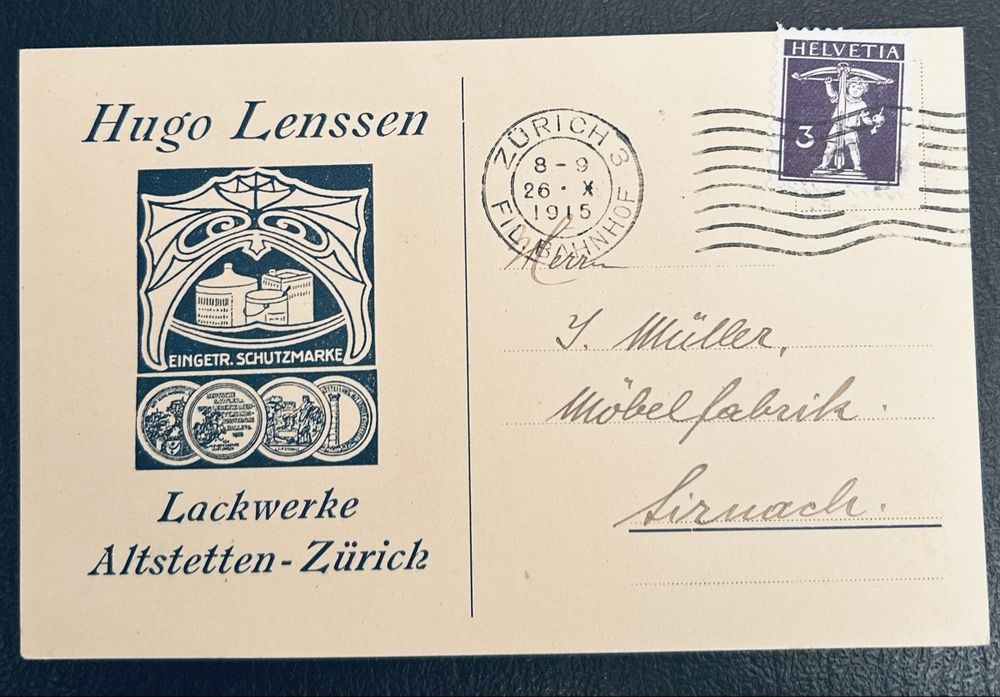 Hugo Lenssen
EINGETR. SCHUTZMARKE
Lackwerke
Altstetten-Zürich
ZÜRICH 3
8-9
26. X
1915
FIL. BAHNHOF
HELVETIA
3
Herrn
J. Müller,
Möbelfabrik.
Sirnach.